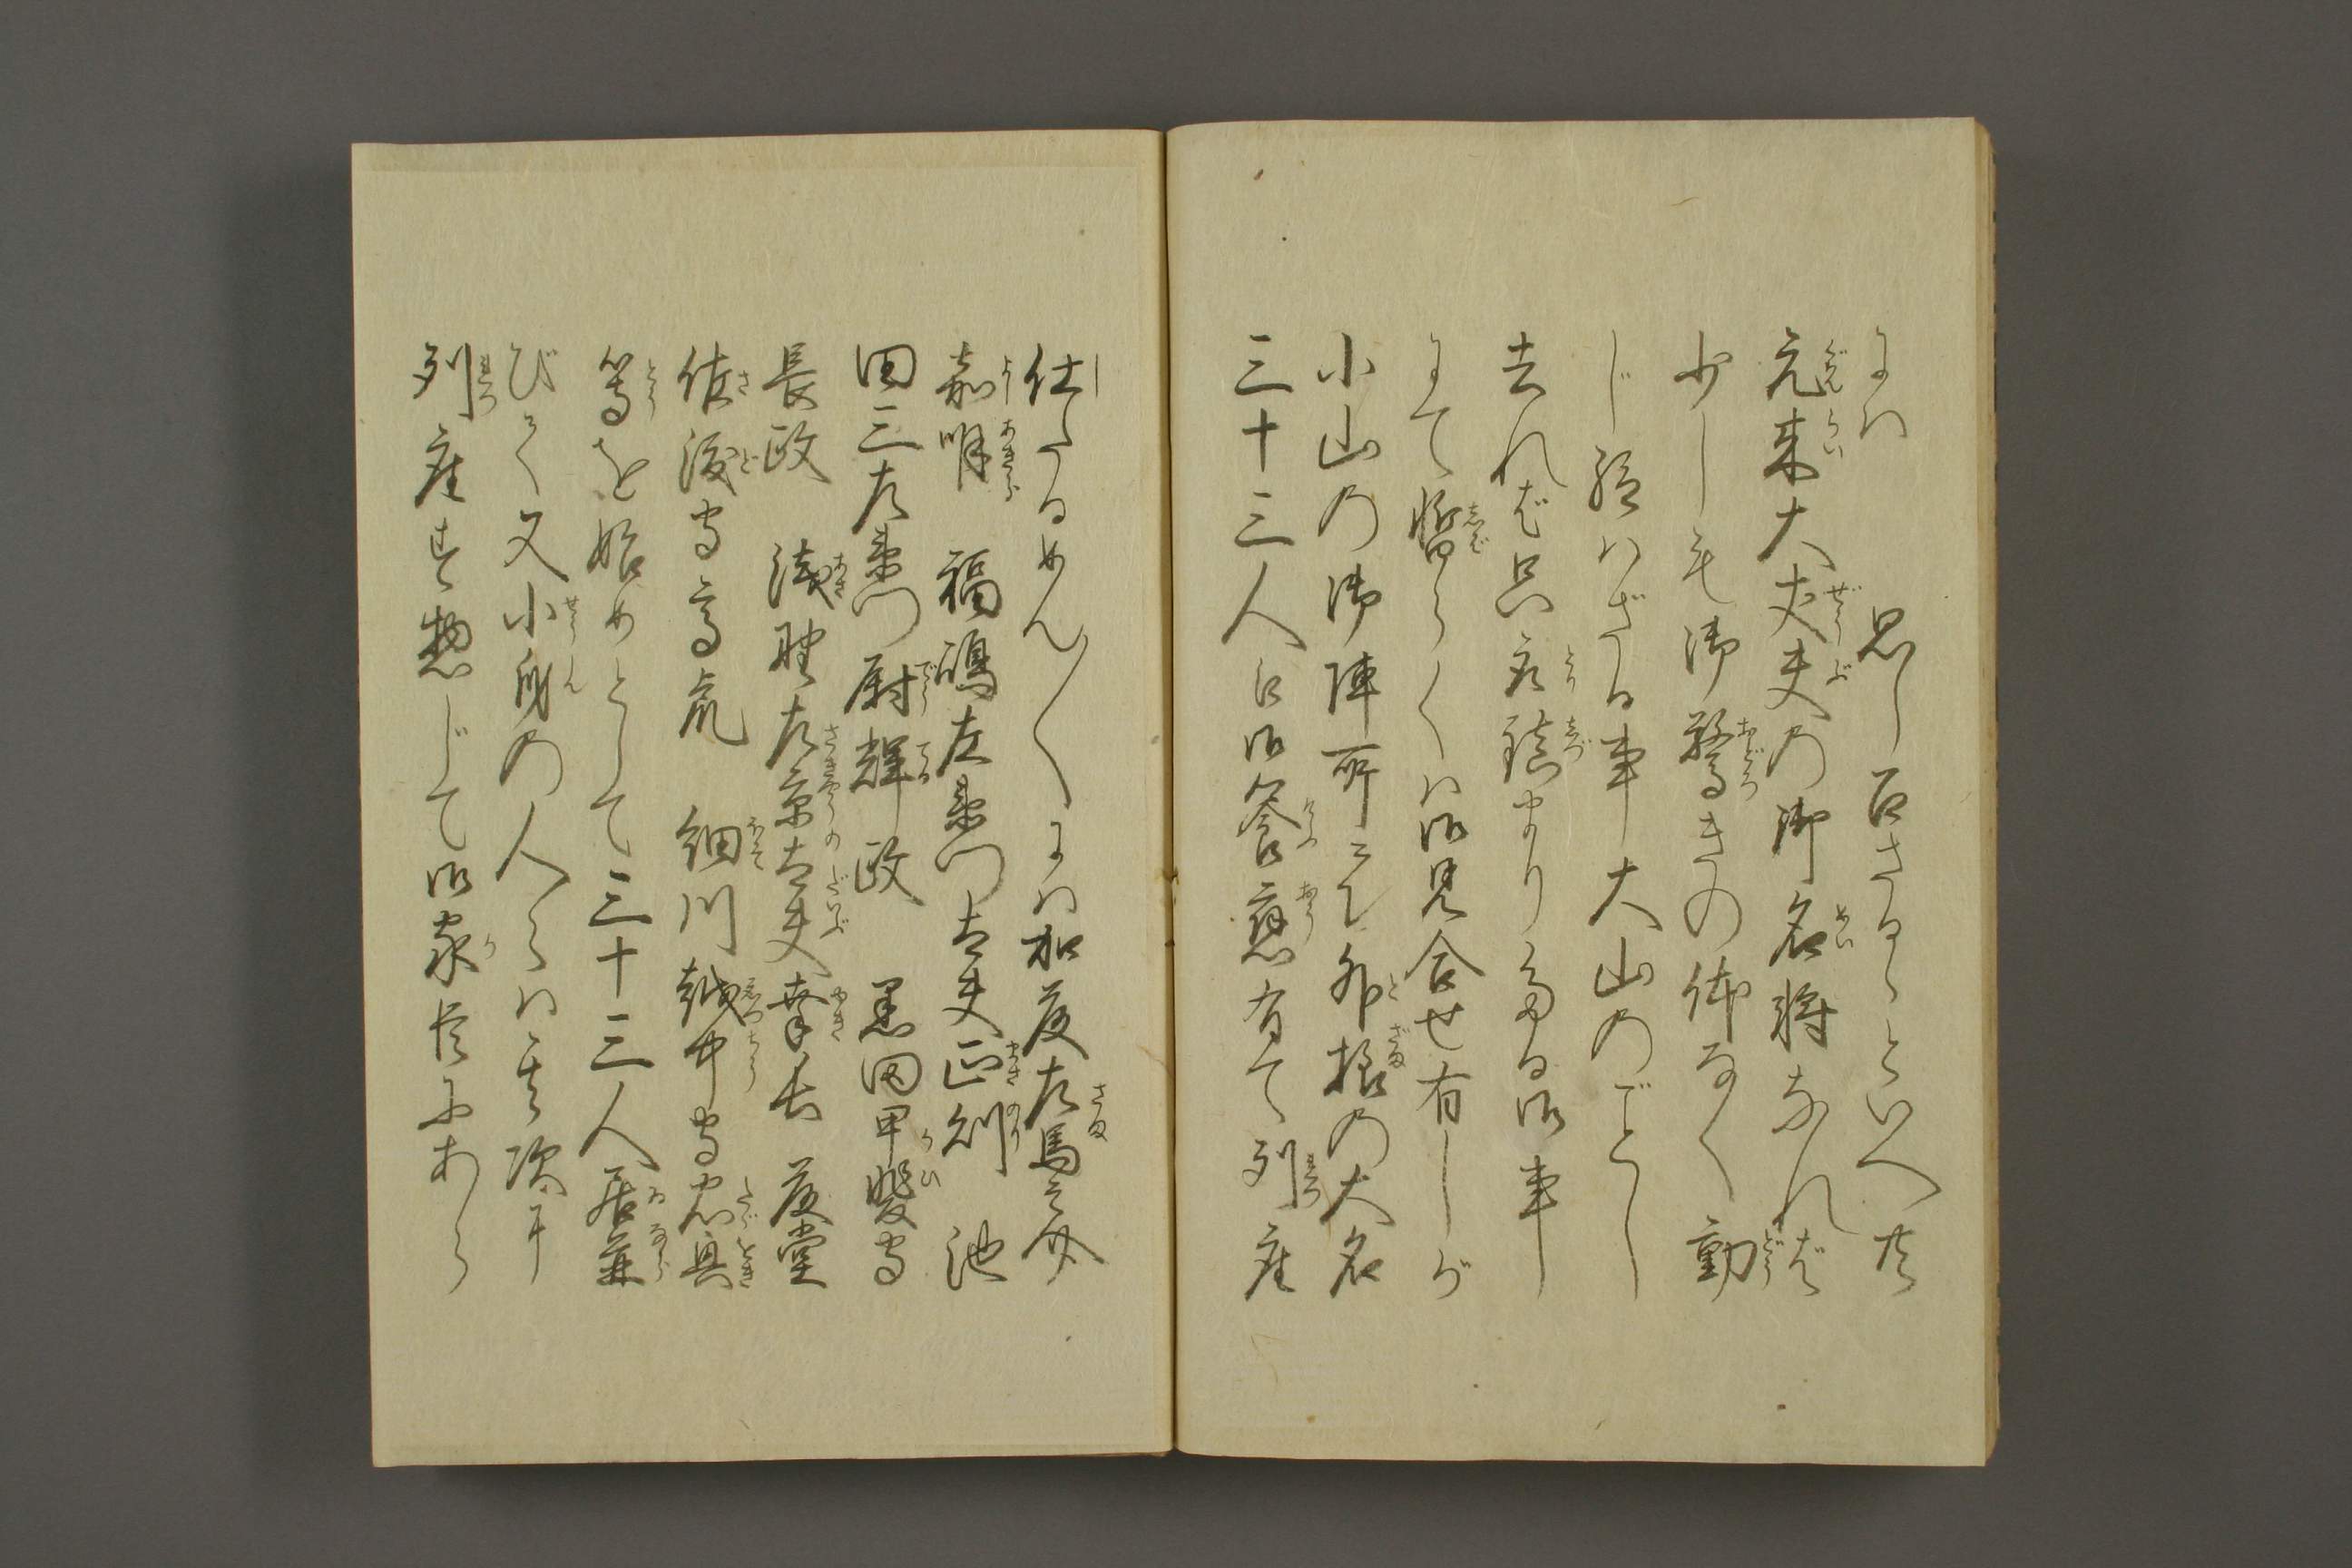 にハ　　思し召さるゝといへ共
元来大丈夫の御名将なれば
少しも御驚きの体なく動
じ給ハざる事大山のごとし
去れば只取鎮まりたる御事
にて暫らくハ御見合せ有しが
小山の御陣所にて外様の大名
三十三人に御饗應有て列座
仕たるめん〳〵にハ加藤左馬之介
嘉明　福嶋左衛門大夫正則　池
田三左衛門尉輝政　黒田甲斐守
長政　浅野左京大夫幸長　藤堂
佐渡守高虎　細川越中守忠興
等を始めとして三十三人居並
びて又小身の人々ハ其次に
列座す惣じて御家臣にあら